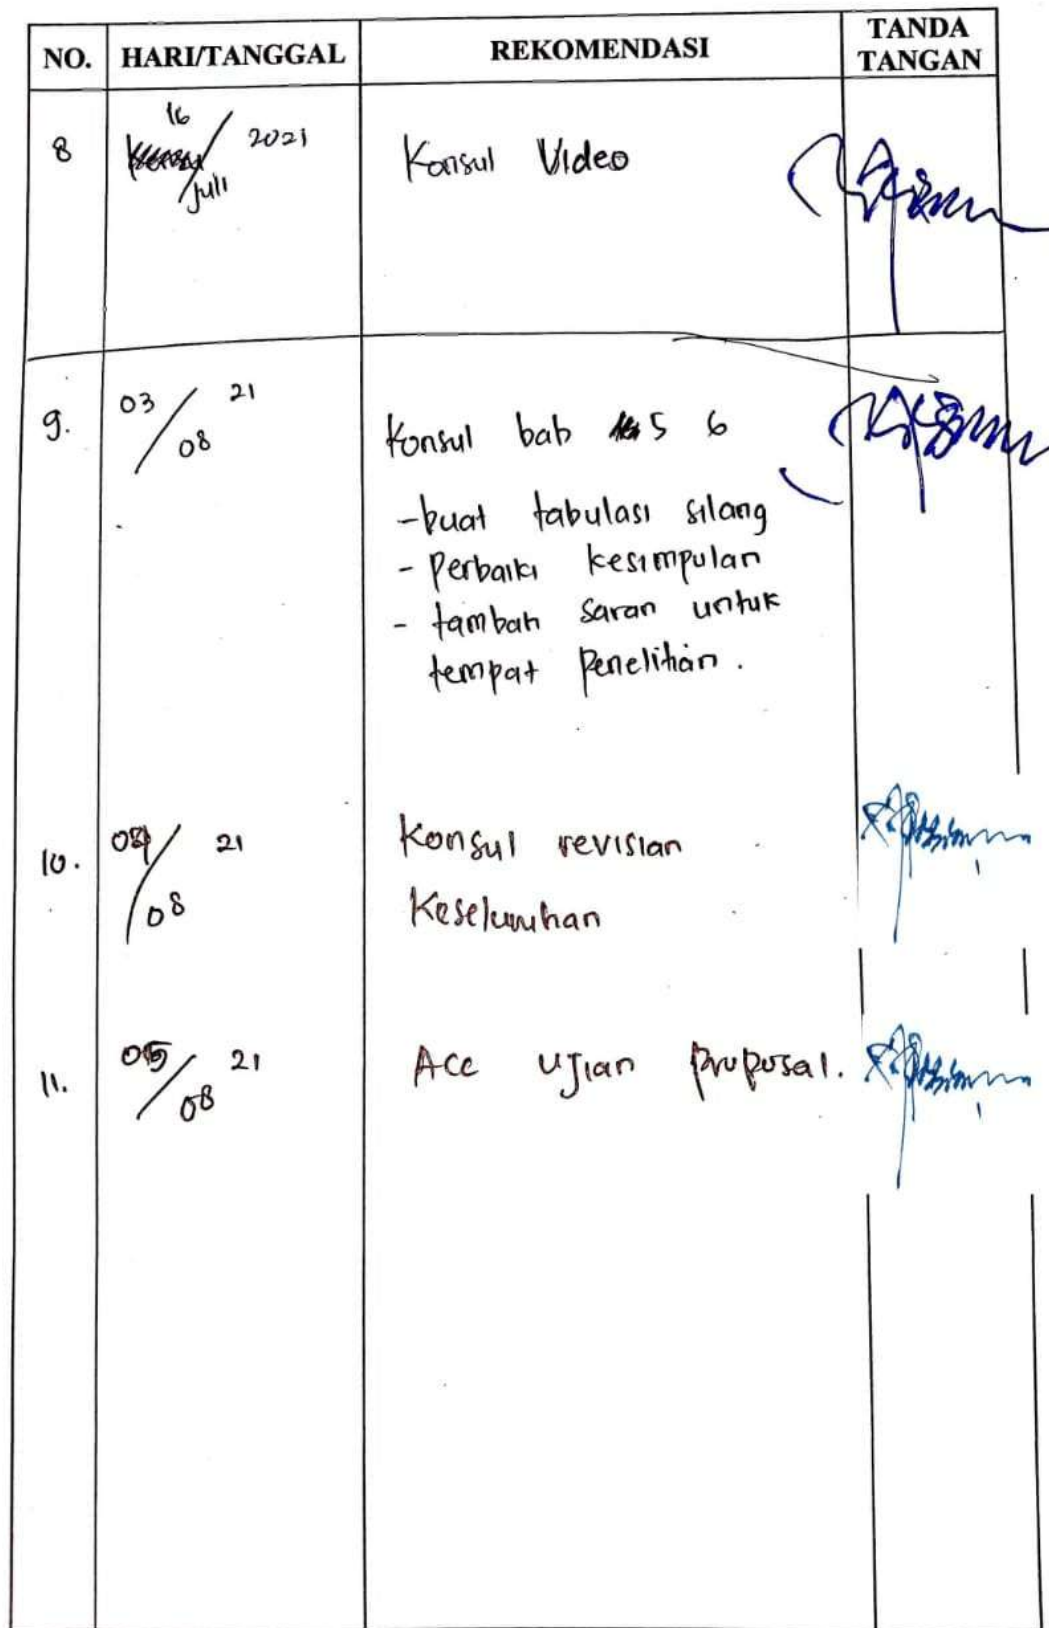 NO. HARI/TANGGAL REKOMENDASI TANDA TANGAN
8 16 / Juli 2021 Konsul Video
9. 03 / 08 21 Konsul bab 5 6
- buat tabulasi silang
- Perbaiki kesimpulan
- tambah saran untuk
tempat Penelitian.
10. 04 / 08 21 Konsul revisian
Keseluruhan
11. 05 / 08 21 Acc Ujian Proposal.